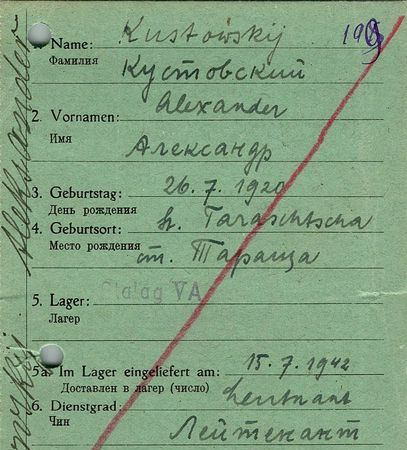 1. Name: Kustowskij 19
Фамилия Кустовский
2. Vornamen: Alexander
Имя Александр
3. Geburtstag: 26. 7. 1920
День рождения
4. Geburtsort: st. Taraschtscha
Место рождения ст. Тараща
5. Lager: Stalag VA
Лагер
5a. Im Lager eingeliefert am: 15. 7. 1942
Доставлен в лагер (число)
6. Dienstgrad: Leutnant
Чин Лейтенант
Aleksander